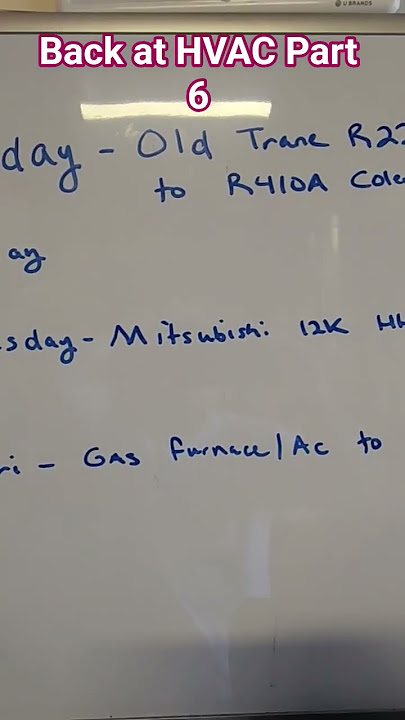 U BRANDS
Back at HVAC Part
6
day - Old Trane R22
to R410A Cole
ay
sday - Mitsubishi 12K HH
ri - Gas furnace/Ac to